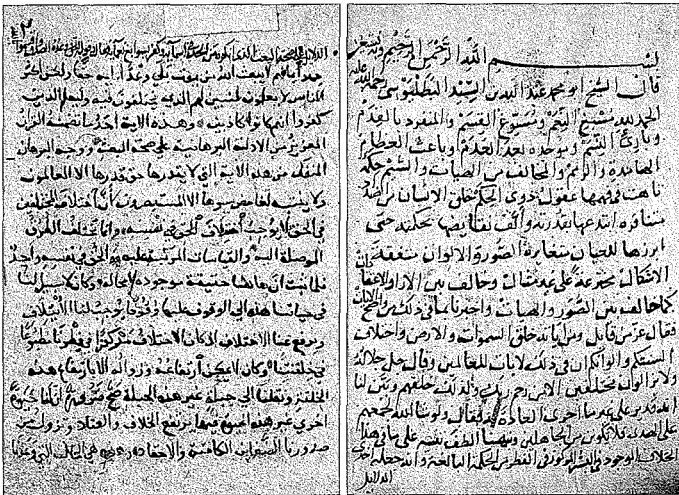 بســـم الله الرحمن الرحيم
قال الشيخ ابو محمد عبد الله بن السيد البطليوسي رحمة الله عليه
الحمد لله مسبغ النعم ومسوغ القسم والمنفرد بالقدم
وبارئ النسم وموجده بعد العدم وباعث العظام
الهامدة والرمم والمخالف بين الهيات والشيم حكمة
تاهت في فهمها عقول ذوي الحكم خلق الانسان من
متنافره ابتدعها بقدرته والف نقايضها بحكمته حتى
ابرزها للعيان متغايرة الصورة والالوان متفقة
الاشكال مخترعة على غير مثال وخالف بين الارا والاعتقادات
كما خالف بين الصور والهيات واخبرنا بما في ذلك من واضح الايات
فقال عز من قايل ومن اياته خلق السموات والارض واختلاف
السنتكم والوانكم ان في ذلك لايات للعالمين وقال جل جلاله
ولا يزالون مختلفين الا من رحم ربك ولذلك خلقهم لنا
الله قدير على غير ما اجرى العادة به فقال ولو شا الله لجمعهم
على الهدى فلا تكونن من الجاهلين ونبهنا الطف تنبيه على ما في هذا
الخلاف الموجود في البشر المركوز في الفطر من الحكمة البالغة وانه جعله احدى
الدلايل
٤٢
على صحة البعث الذي
جهد ايمانهم لا يبعث الله من يموت بلى وعدا عليه حقا ولكن اكثر
الناس لا يعلمون ليبين لهم الذي يختلفون فيه وليعلم الذين
كفروا انهم كانوا كاذبين وهذه الاية احدى ما تضمنه القران
العزيز من الادلة البرهانية على صحة البعث ووجه البرهان
المنفك من هذه الاية التي لا يقدرها حق قدرها الا العالمون
ولا ينتبه لغامض سرها الا المستبصرون ان اختلاف المختلفين
في الحق لا يوجب اختلاف الحق في نفسه وانما تختلف الطرق
الموصلة اليه والقياسات المركبة عليه والحق في نفسه واحد
فلما ثبت ان هاهنا حقيقة موجودة لا محالة وكان لا سبيل لنا
في حياتنا هذه الى الوقوف عليها وقوفا يوجب لنا الائتلاف
ويرفع عنا الاختلاف اذ كان الاختلاف مركوزا في فطرنا مطبوعا
في خلقتنا وكان لا يمكن ارتفاعه وزواله الا بارتفاع هذه
الخلقة ونقلنا الى جبلة غير هذه الجبلة صح ضرورة ان لنا حيوة
اخرى غير هذه الحيوة فيها يرتفع الخلاف والعناد وتزول من
صدورنا الضغاين الكامنة والاحقاد وهذه هي الحال التي وعدنا